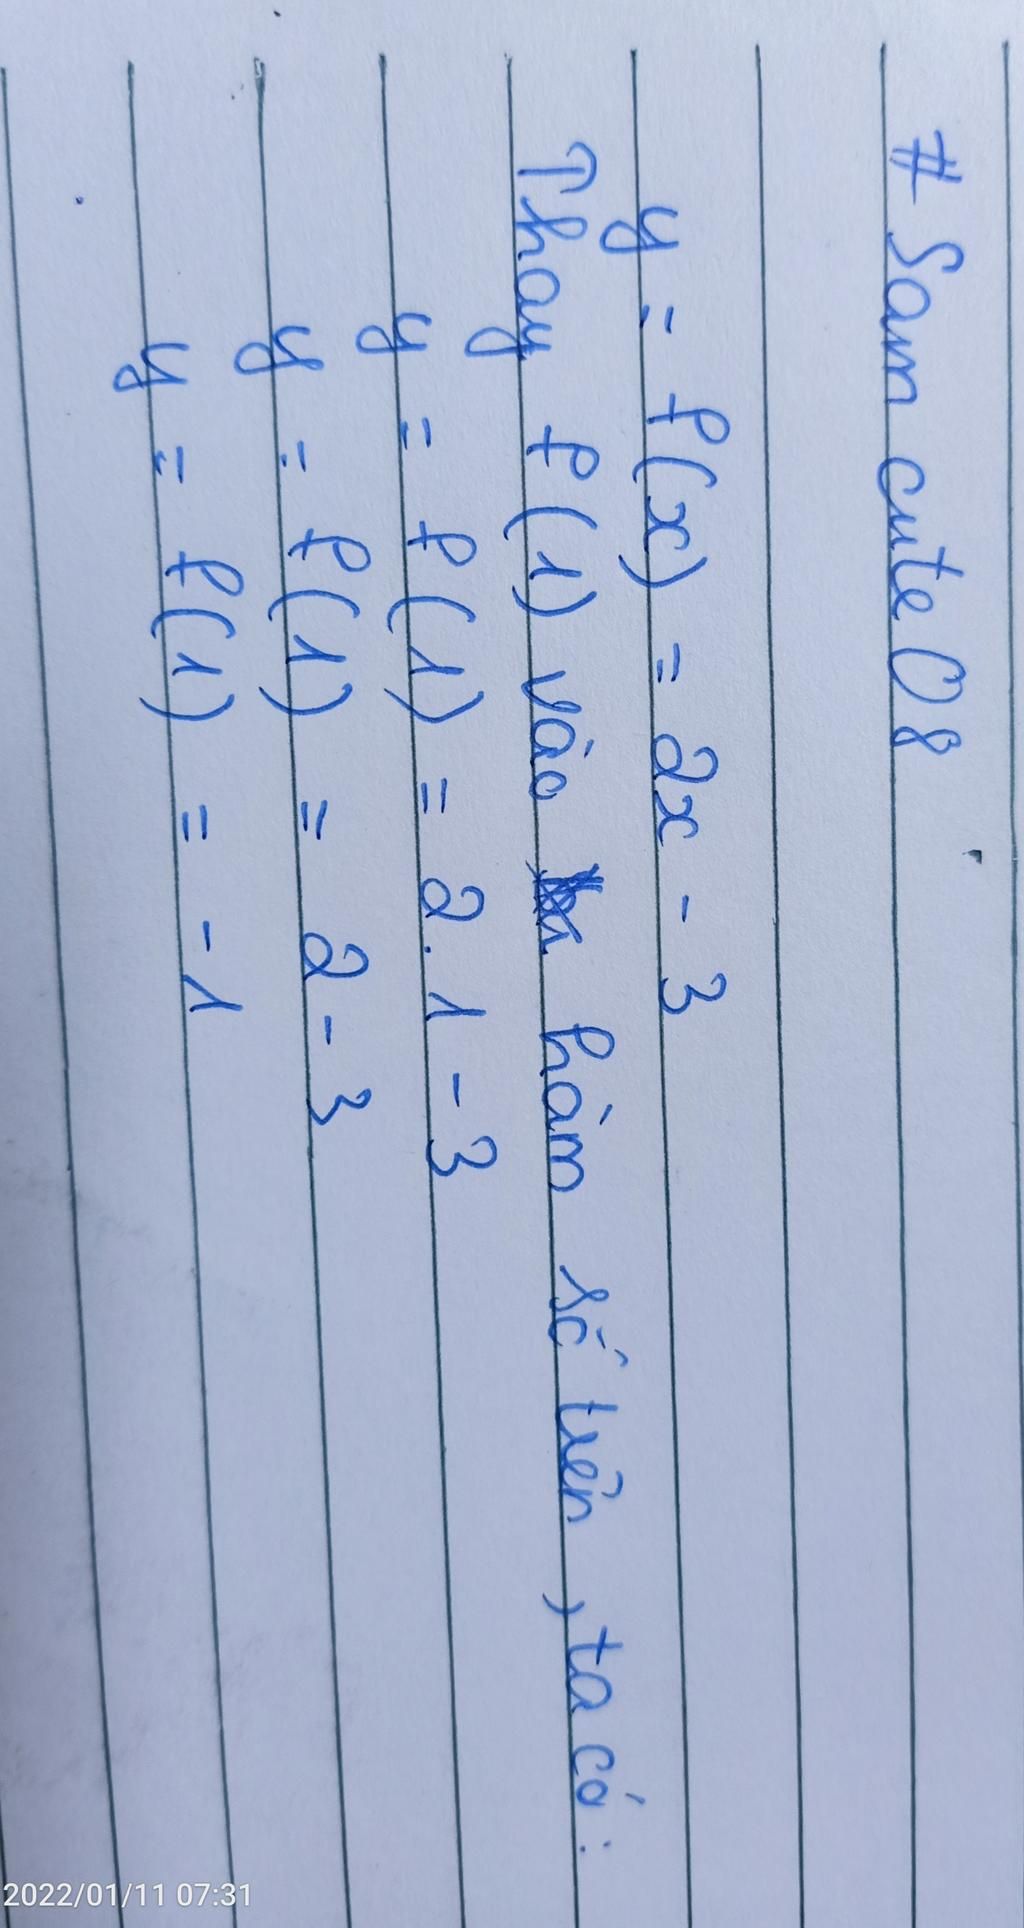 # Sam cute08
y = f(x) = 2x - 3
Thay f(1) vào hàm số trên, ta có:
y = f(1) = 2.1 - 3
y = f(1) = 2 - 3
y = f(1) = -1
2022/01/11 07:31